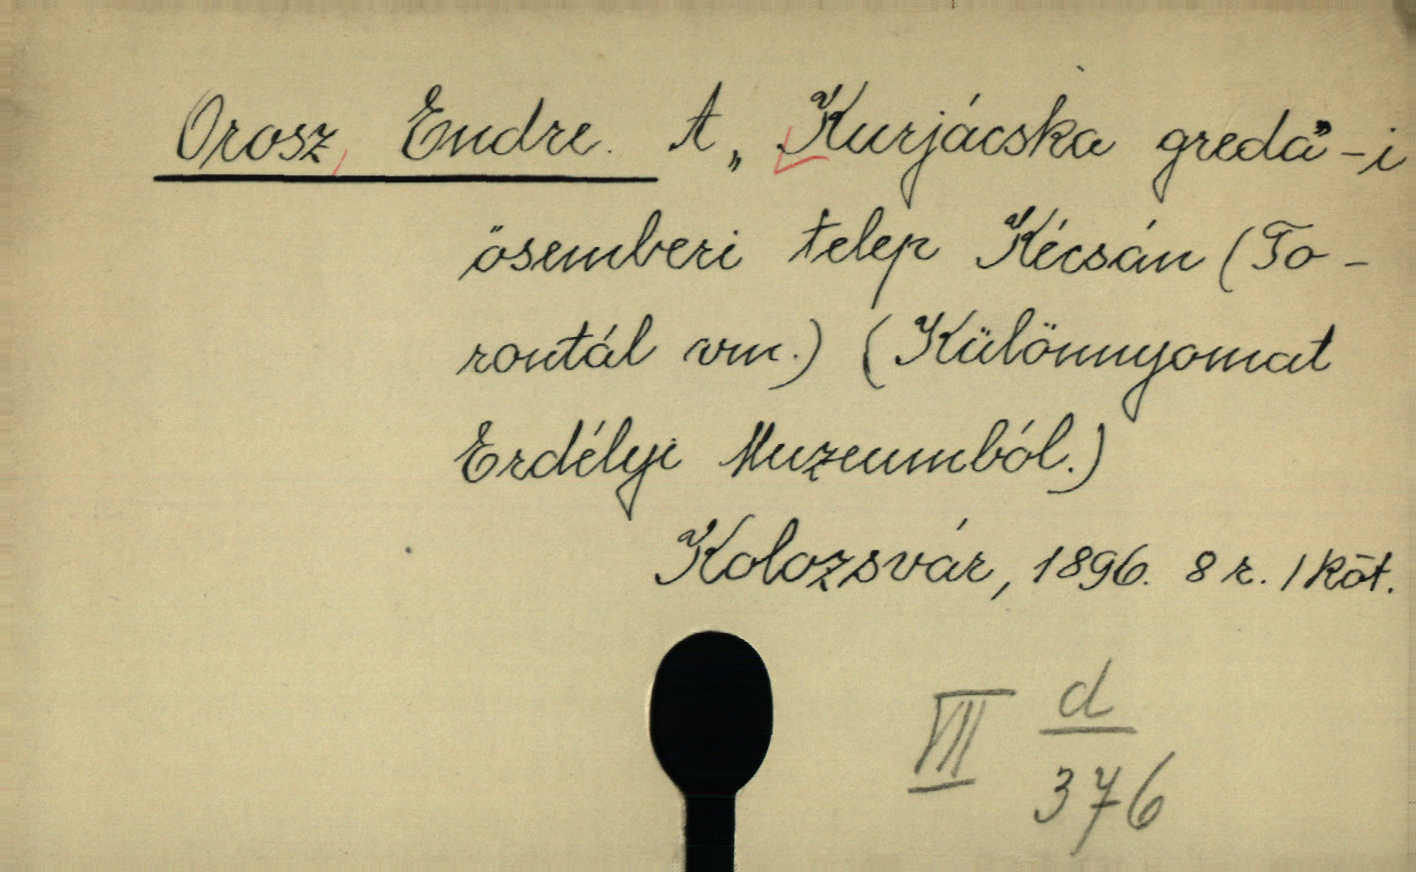 Orosz, Endre. A „Kurjácska greda"-i
ösemberi telep Kécsán (To-
rontál vm.) (Különnyomat
Erdélyi Muzeumból.)
Kolozsvár, 1896. 8 r. 1 köt.
VII d
376